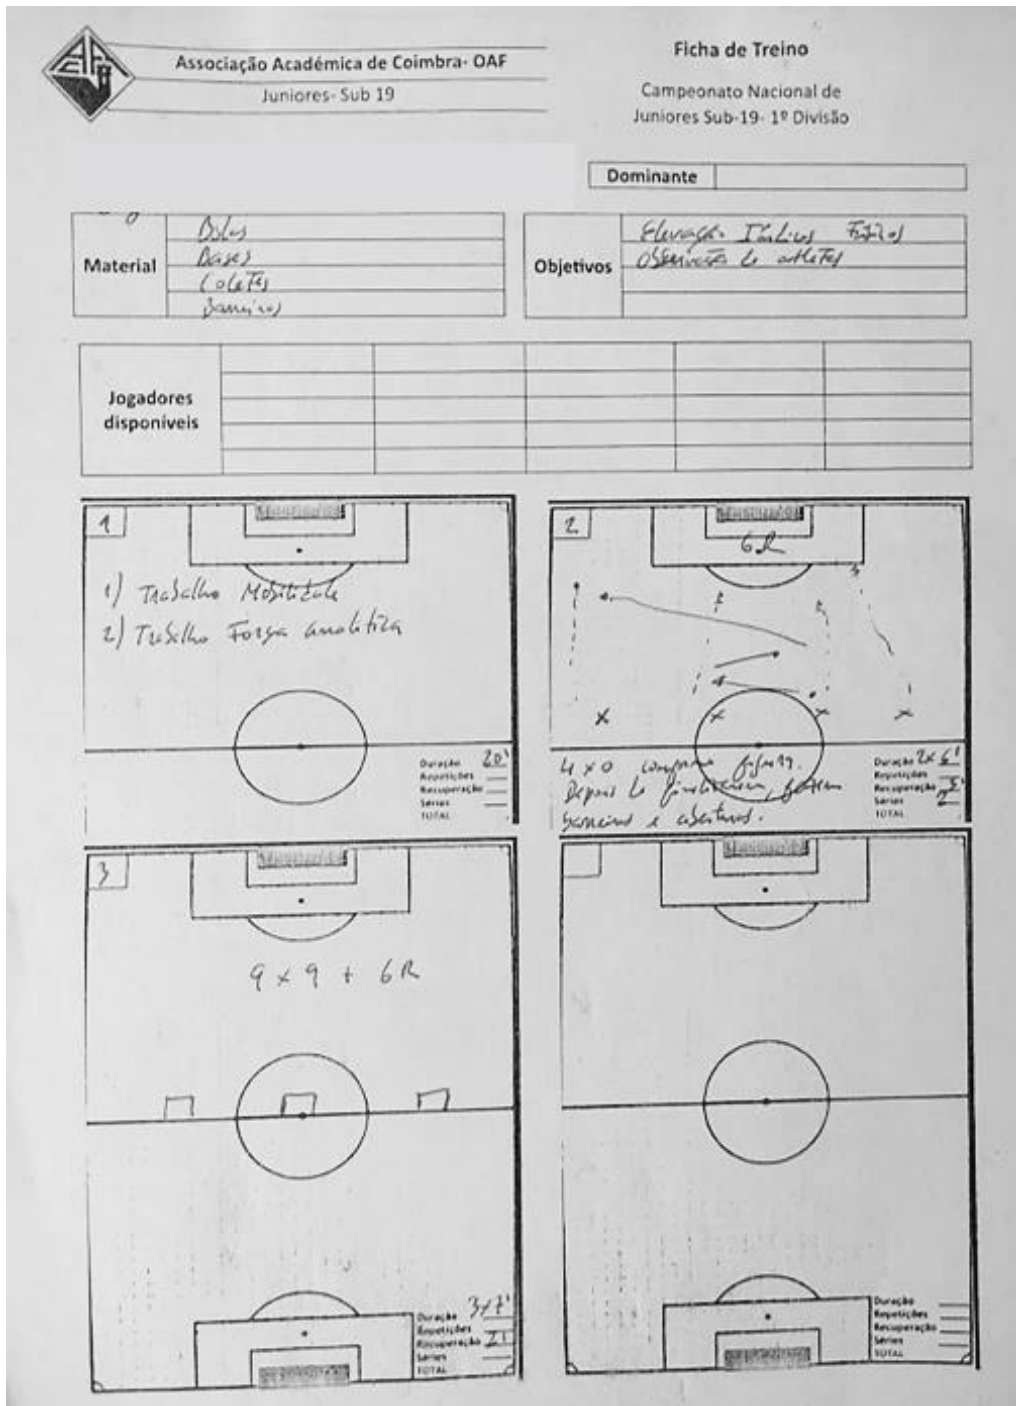 Associação Académica de Coimbra- OAF
Juniores- Sub 19
Ficha de Treino
Campeonato Nacional de
Juniores Sub-19- 1º Divisão
Dominante
Material
Bolas
Bases
Coletes
Barreiras
Objetivos
Elevação Físicos
Observação de atletas
Jogadores
disponíveis
1
1) Trabalho Mobilidade
2) Trabalho Força analítica
Duração 20'
Repetições
Recuperação
Séries
TOTAL
2
6 R
x x x x
4 x 0 conforme figura.
Depois de finalizarem, fazem
barreiras e aberturas.
Duração 2x6'
Repetições
Recuperação
Séries 2
TOTAL
3
9 x 9 + 6R
Duração 3x7'
Repetições
Recuperação 2'
Séries
TOTAL
Duração
Repetições
Recuperação
Séries
TOTAL